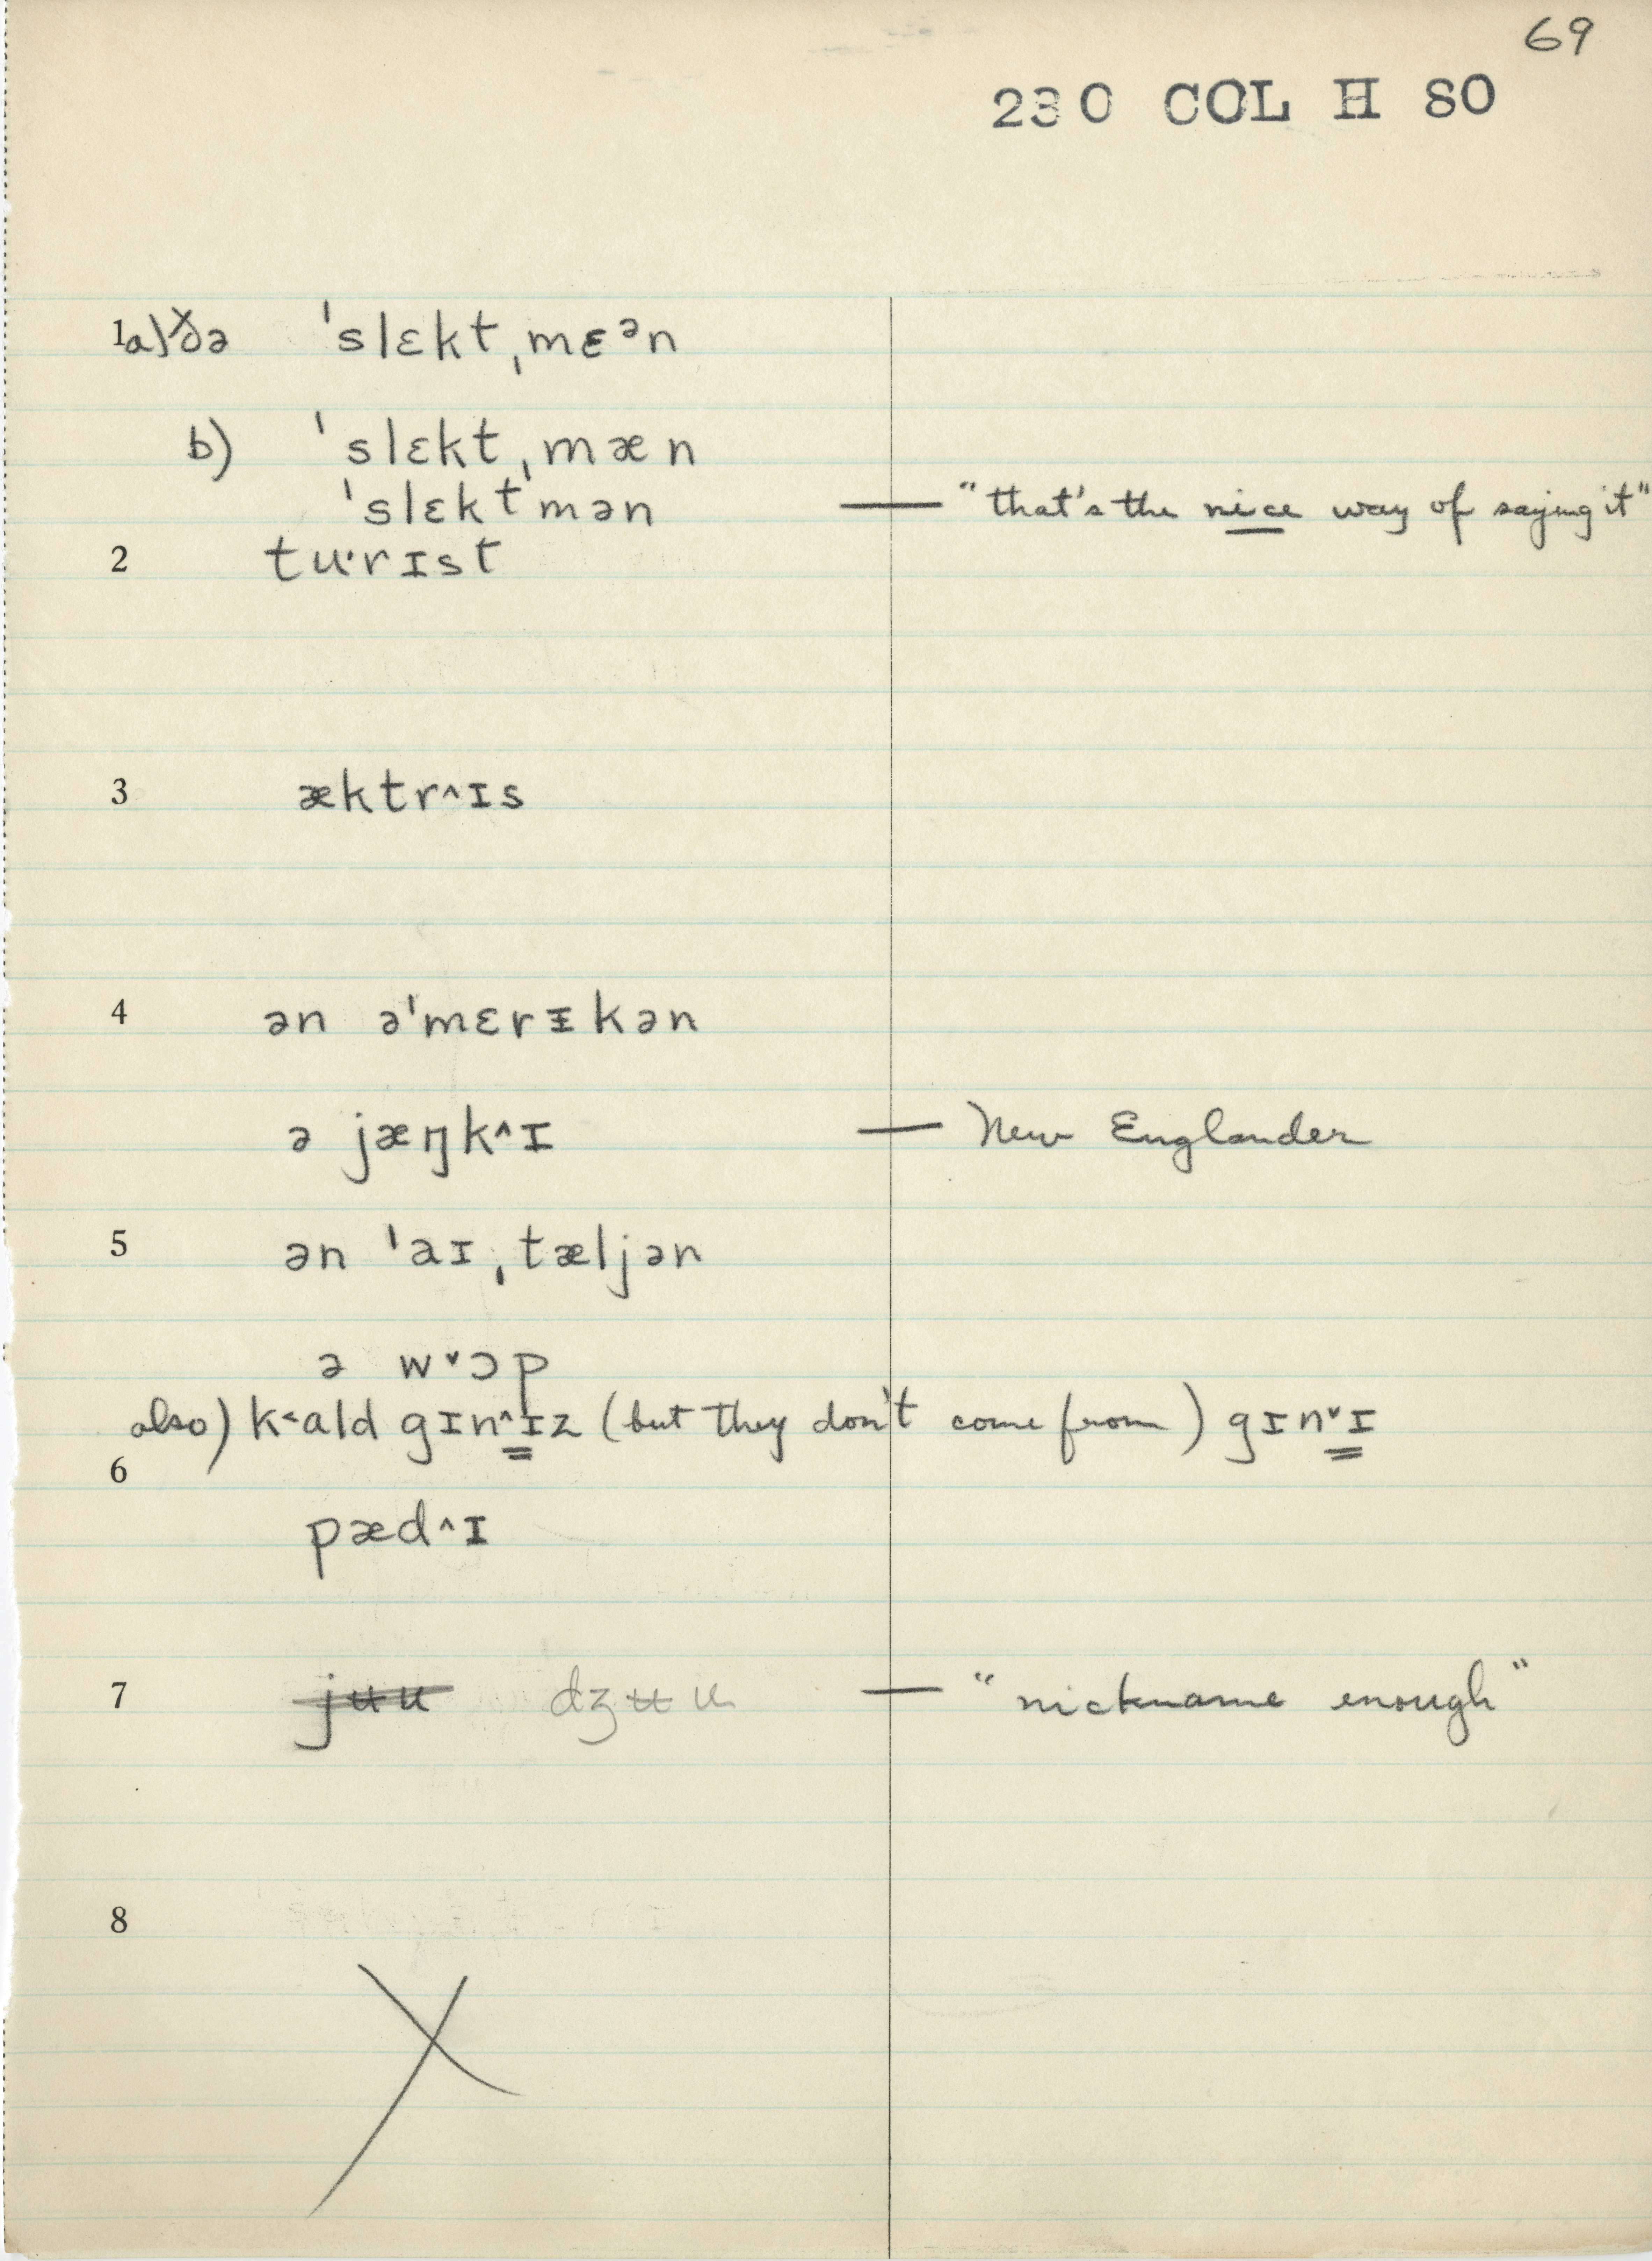 69
230 COL H 80
1 a) ðə ˈslɛktˌmɛᵊn
b) ˈslɛktˌmæn
ˈslɛktˈmən — "that's the nice way of saying it"
2 tu·rɪst
3 æktr^ɪs
4 ən əˈmɛrᵻkən
ə jæŋk^ɪ — New Englander
5 ən ˈaɪˌtæljən
ə w˅ɔp
also) k˂ald gɪn^ɪz (but they don't come from) gɪn˅ɪ
6
pæd^ɪ
7 jʉu dʒʉu — "nickname enough"
8
X